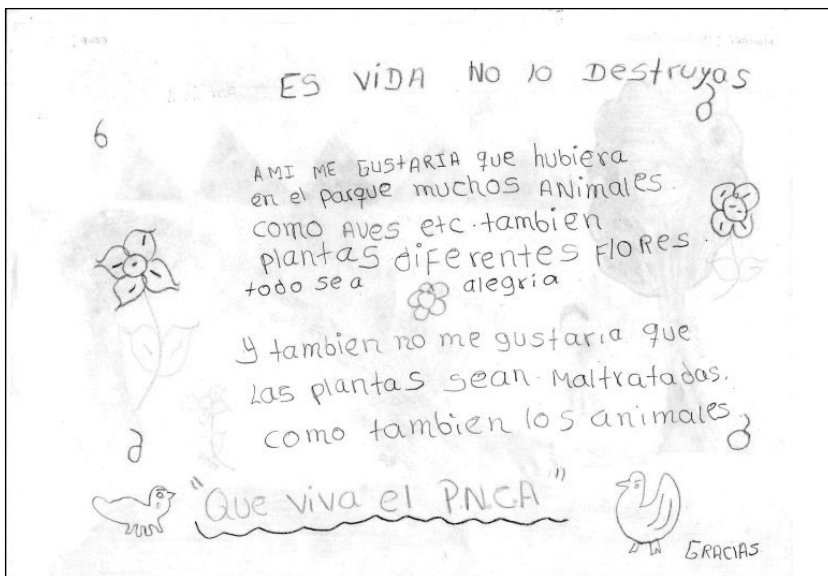 ES ViDA No lo Destruyas
AMI ME GUStARIA que hubiera
en el parque muchos ANimales.
como Aves etc. tambien
plantas diferentes FLORES.
todo sea alegria
y tambien no me gustaria que
Las plantas sean Maltratadas.
como tambien los animales.
"Que viva el P.N.C.A"
GRACIAS